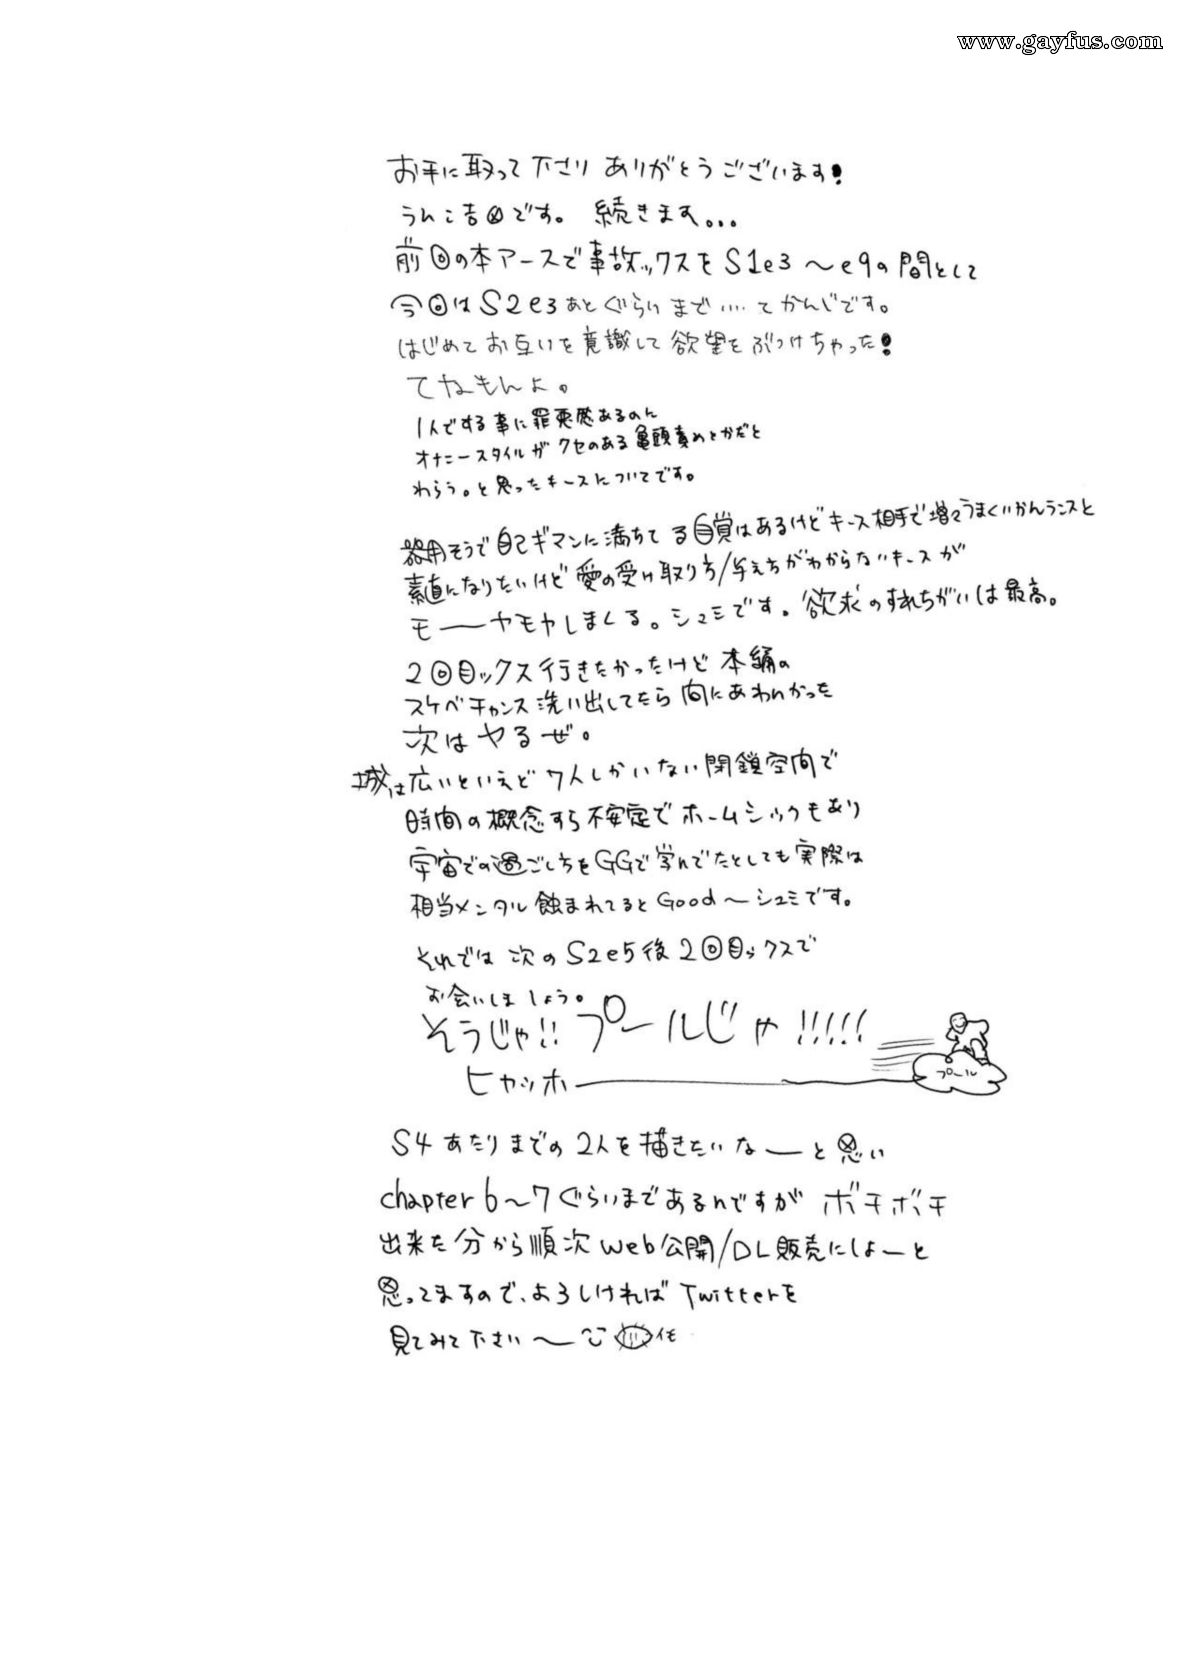 www.gayfus.com
お手に取って下さり ありがとうございます!
うんこ吉田です。 続きます...
前回の本アースで事故ックスを S1e3 〜e9の間として
今回は S2e3 あとぐらいまで....てかんじです。
はじめて お互いを意識して 欲望を ぶつけちゃった!
てなもんよ。
1人でする事に罪悪感あるのん
オナニースタイルが クセのある亀頭責めとかだと
わらう。と思ったキースについてです。
器用そうで 自己ギマンに満ちてる自覚はあるけどキース相手で増々うまくいかんランスと
素直になりたいけど 愛の受け取り方/与え方がわからないキースが
モーヤモヤしまくる。シュミです。欲求のすれちがいは最高。
2回目ックス行きたかったけど 本編の
スケベチャンス洗い出してたら 間にあわんかった
次は ヤるぜ。
城は広いといえど 7人しかいない閉鎖空間で
時間の概念すら不安定で ホームシックもあり
宇宙での過ごし方をGGで学んでたとしても実際は
相当メンタル蝕まれてるとGood〜シュミです。
それでは 次の S2e5後 2回目ックスで
お会いしましょう。
そうじゃ!! プールじゃ!!!!!
ヒャッホー
プール
S4 あたりまでの 2人を描きたいなーと思い
chapter 6〜7ぐらいまであるんですが ボチボチ
出来た分から順次 Web公開/DL販売にしよーと
思ってますので、よろしければ Twitterを
見てみて下さい〜